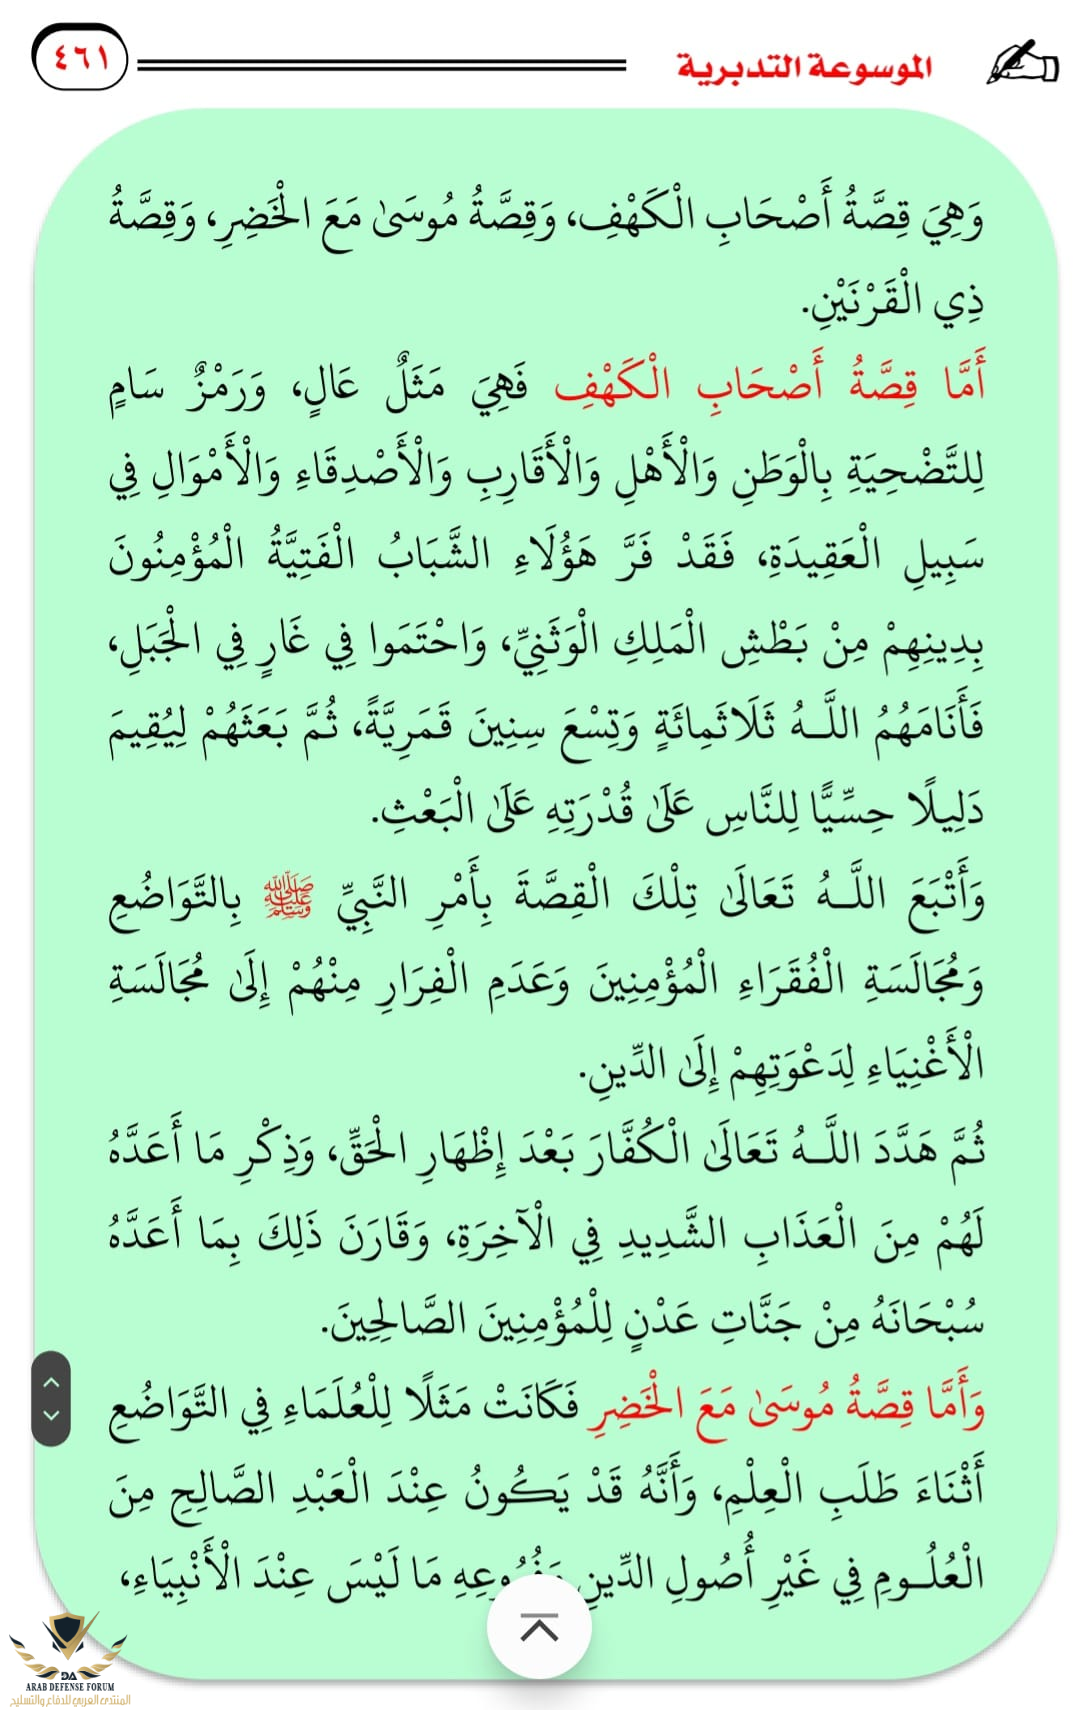 الموسوعة التدبرية
٤٦١
وَهِيَ قِصَّةُ أَصْحَابِ الْكَهْفِ، وَقِصَّةُ مُوسَىٰ مَعَ الْخَضِرِ، وَقِصَّةُ
ذِي الْقَرْنَيْنِ.
أَمَّا قِصَّةُ أَصْحَابِ الْكَهْفِ فَهِيَ مَثَلٌ عَالٍ، وَرَمْزٌ سَامٍ
لِلتَّضْحِيَةِ بِالْوَطَنِ وَالْأَهْلِ وَالْأَقَارِبِ وَالْأَصْدِقَاءِ وَالْأَمْوَالِ فِي
سَبِيلِ الْعَقِيدَةِ، فَقَدْ فَرَّ هَؤُلَاءِ الشَّبَابُ الْفَتِيَّةُ الْمُؤْمِنُونَ
بِدِينِهِمْ مِنْ بَطْشِ الْمَلِكِ الْوَثَنِيِّ، وَاحْتَمَوا فِي غَارٍ فِي الْجَبَلِ،
فَأَنَامَهُمُ اللَّـهُ ثَلَاثَمِائَةٍ وَتِسْعَ سِنِينَ قَمَرِيَّةً، ثُمَّ بَعَثَهُمْ لِيُقِيمَ
دَلِيلًا حِسِّيًّا لِلنَّاسِ عَلَىٰ قُدْرَتِهِ عَلَىٰ الْبَعْثِ.
وَأَتْبَعَ اللَّـهُ تَعَالَىٰ تِلْكَ الْقِصَّةَ بِأَمْرِ النَّبِيِّ ﷺ بِالتَّوَاضُعِ
وَمُجَالَسَةِ الْفُقَرَاءِ الْمُؤْمِنِينَ وَعَدَمِ الْفِرَارِ مِنْهُمْ إِلَىٰ مُجَالَسَةِ
الْأَغْنِيَاءِ لِدَعْوَتِهِمْ إِلَىٰ الدِّينِ.
ثُمَّ هَدَّدَ اللَّـهُ تَعَالَىٰ الْكُفَّارَ بَعْدَ إِظْهَارِ الْحَقِّ، وَذِكْرِ مَا أَعَدَّهُ
لَهُمْ مِنَ الْعَذَابِ الشَّدِيدِ فِي الْآخِرَةِ، وَقَارَنَ ذَلِكَ بِمَا أَعَدَّهُ
سُبْحَانَهُ مِنْ جَنَّاتِ عَدْنٍ لِلْمُؤْمِنِينَ الصَّالِحِينَ.
وَأَمَّا قِصَّةُ مُوسَىٰ مَعَ الْخَضِرِ فَكَانَتْ مَثَلًا لِلْعُلَمَاءِ فِي التَّوَاضُعِ
أَثْنَاءَ طَلَبِ الْعِلْمِ، وَأَنَّهُ قَدْ يَكُونُ عِنْدَ الْعَبْدِ الصَّالِحِ مِنَ
الْعُلُـومِ فِي غَيْرِ أُصُولِ الدِّينِ وَفُرُوعِهِ مَا لَيْسَ عِنْدَ الْأَنْبِيَاءِ،
DA
ARAB DEFENSE FORUM
المنتدى العربي للدفاع والتسليح